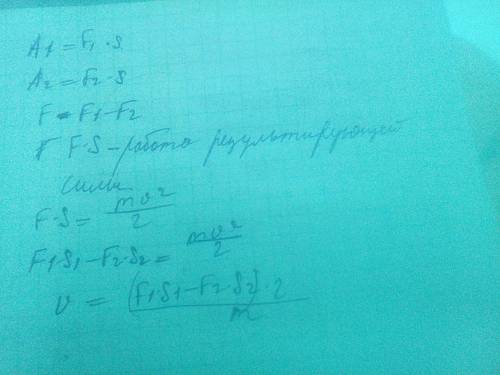 A1 = F1 · s
A2 = F2 · s
F = F1 - F2
F·S - работа результирующей
силы
F·S = mv²/2
F1·S1 - F2·S2 = mv²/2
v = (F1·S1 - F2·S2)·2/m